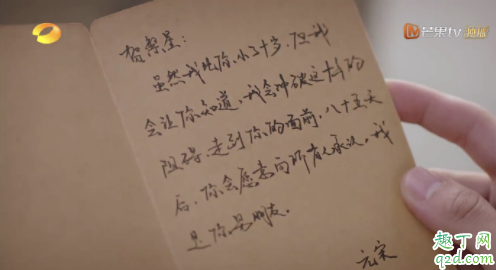 芒果tv 独播
贺繁星:
虽然我比你小了十岁,但我
会让你知道,我会冲破这十岁的
阻碍,走到你的面前,八十五天
后,你会愿意向所有人承认,我
是你男朋友。
元宋
趣丁网
q2d.com